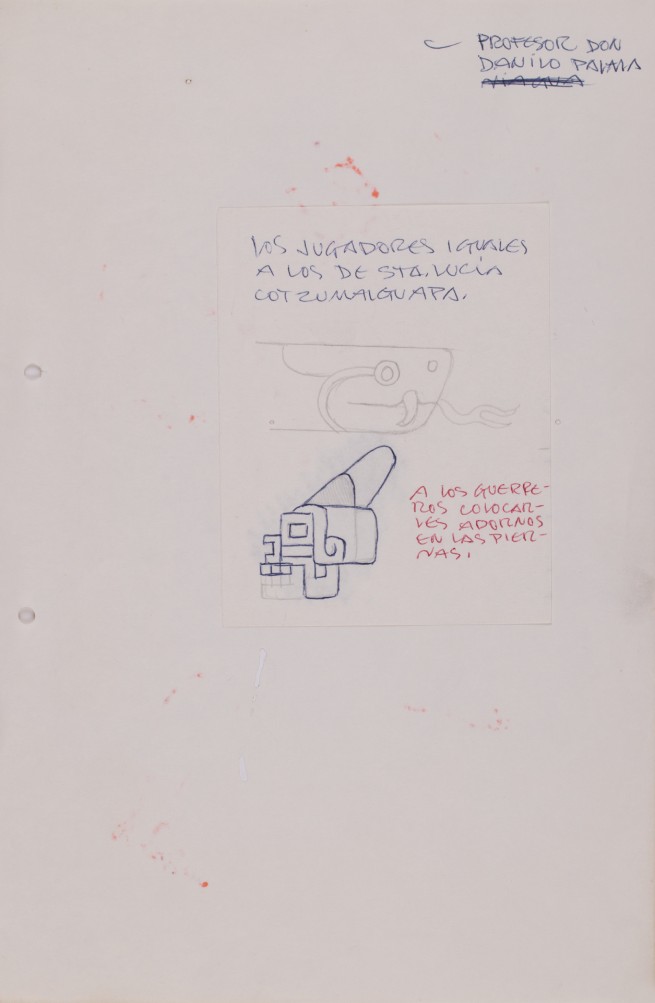 PROFESOR DON
DANILO PALMA
LOS JUGADORES IGUALES
A LOS DE STA. LUCÍA
COTZUMALGUAPA.
A LOS GUERRE-
ROS COLOCAR-
LES ADORNOS
EN LAS PIER-
NAS.